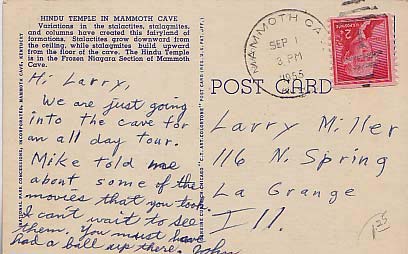 HINDU TEMPLE IN MAMMOTH CAVE
Variations in the stalactites, stalagmites,
and columns have created this fairyland of
formations. Stalactites grow downward from
the ceiling, while stalagmites build upward
from the floor of the cave. The Hindu Temple
is in the Frozen Niagara Section of Mammoth
Cave.
Hi Larry,
We are just going
into the cave for
an all day tour.
Mike told me
about some of the
movies that you took.
I can't wait to see
them. You must have
had a ball up there. John
NATIONAL PARK CONCESSIONS, INCORPORATED, MAMMOTH CAVE, KENTUCKY
MAMMOTH CA
SEP 1
3 PM
1955
2¢
POST CARD
Larry Miller
116 N. Spring
La Grange
Ill.
1.25